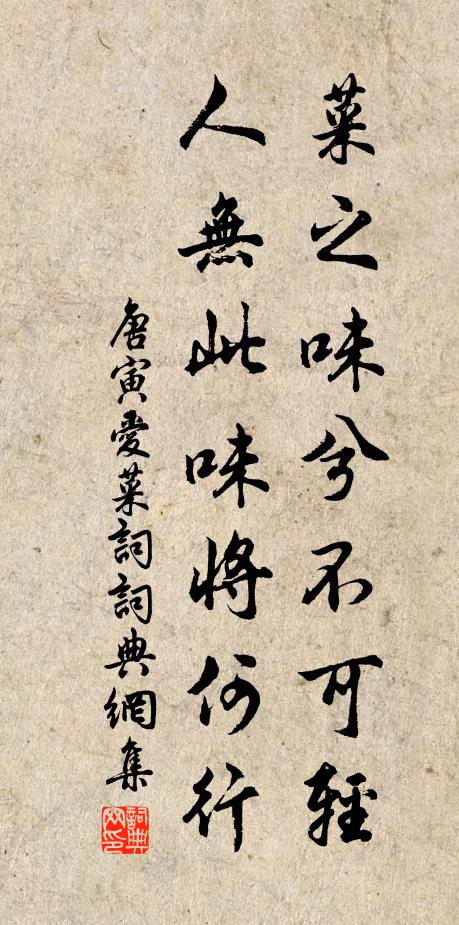 菜之味兮不可輕
人無此味將何行
唐寅愛菜詞詞典網集
詞典
网印